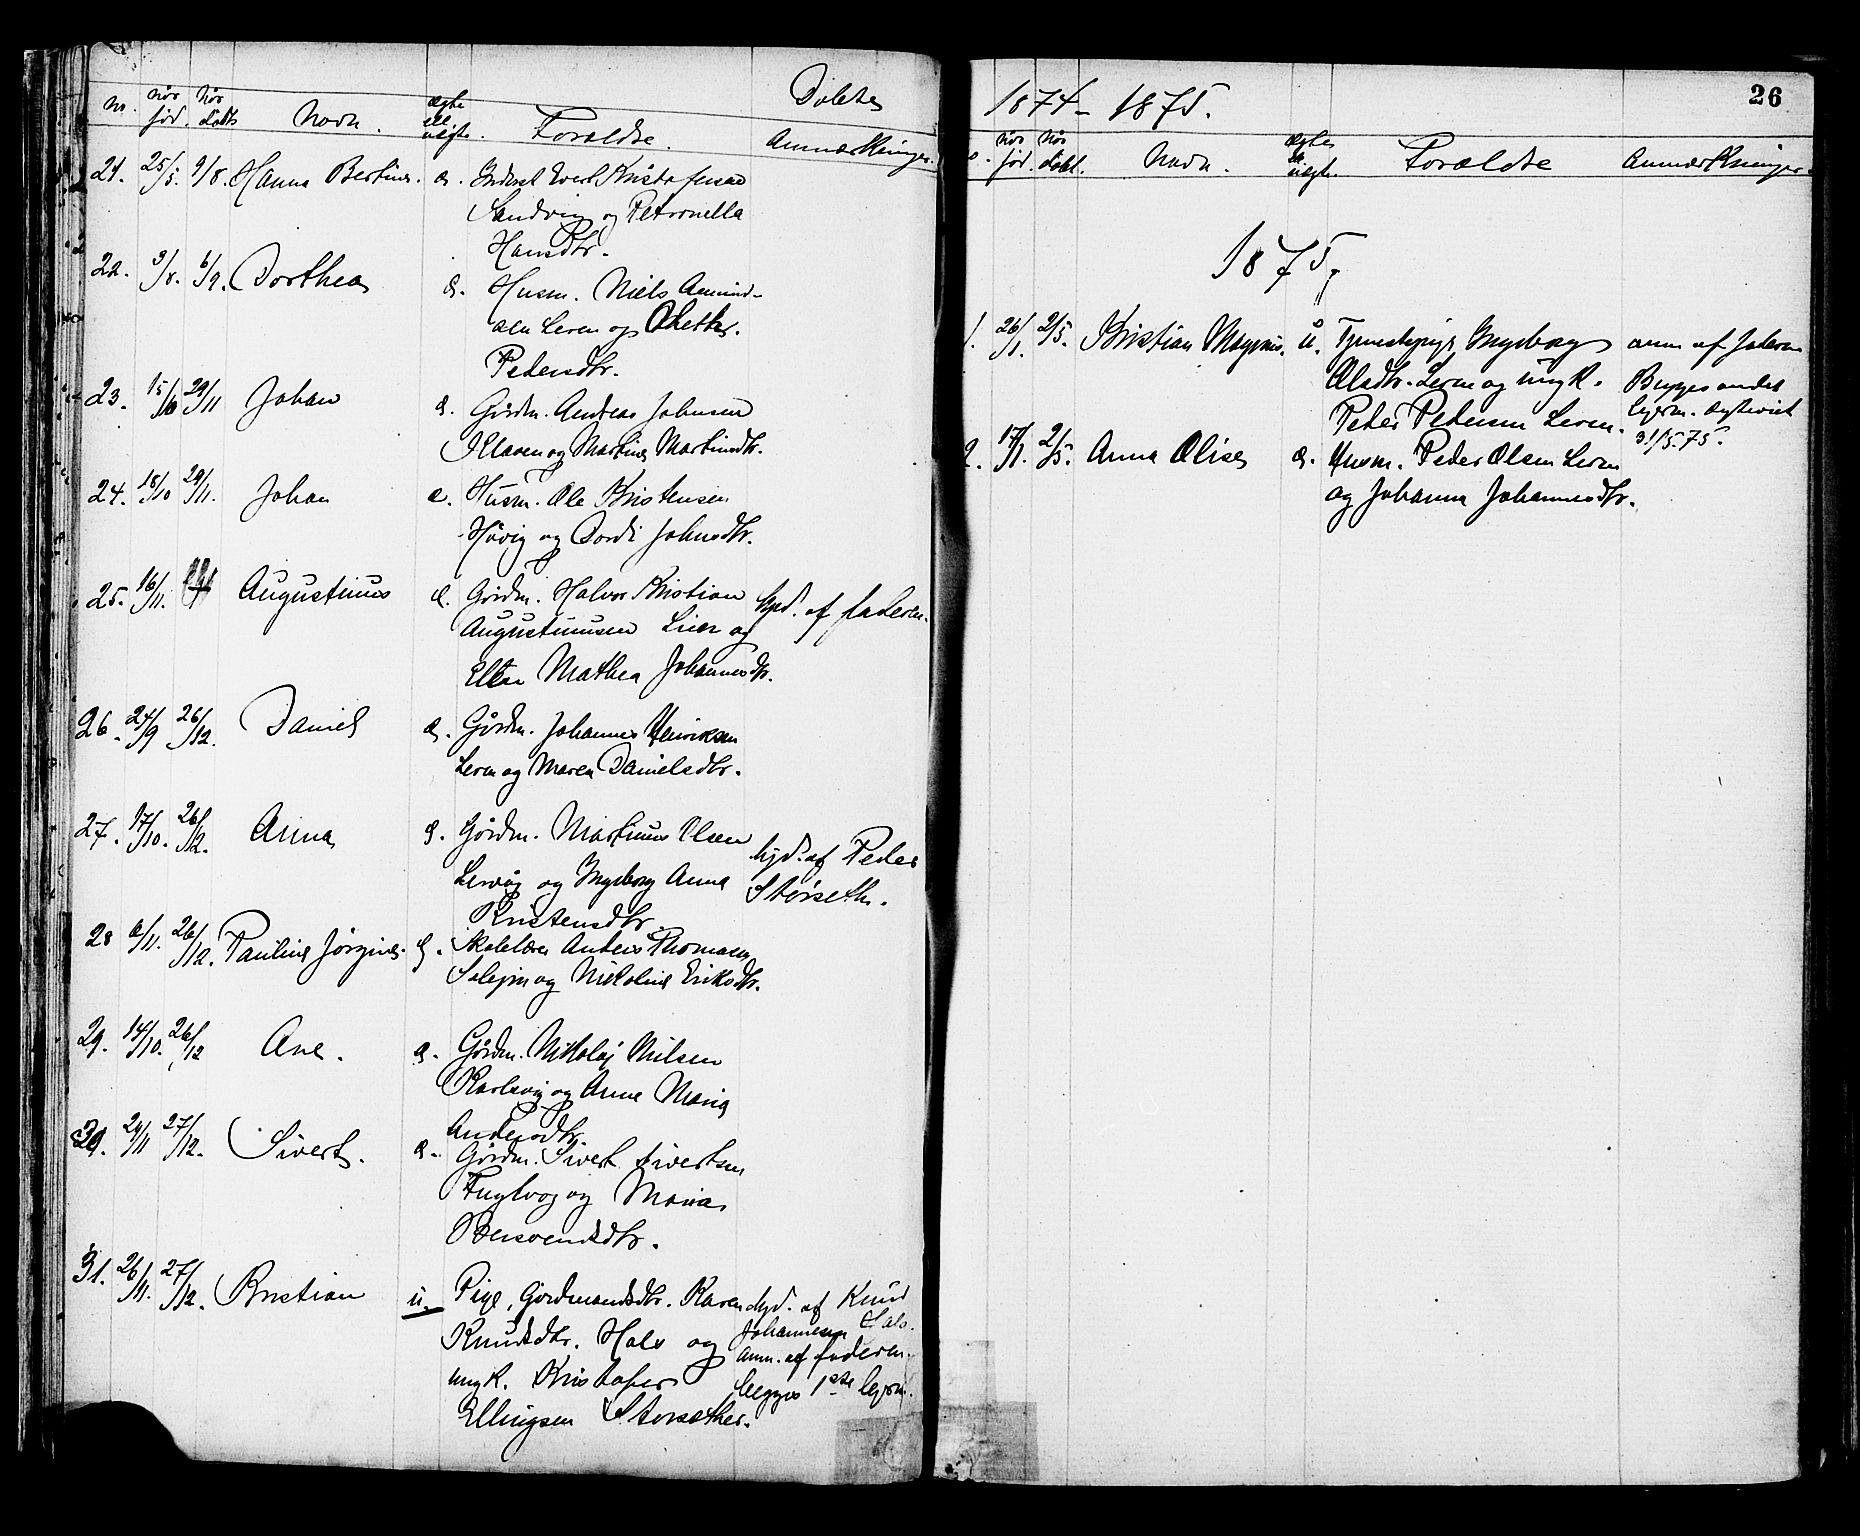 Døbte
No. Når fød. Når døbt. Navn. ægte ell. uægte. Forældre. Anmærkninger.
21. 25/5. 9/8. Hanna Bertine. æ. Evert Kristofersen
Sandvig og Petronella
Hansdtr.
22. 3/8. 6/9. Dorthea æ. Husm. Niels Amund-
sen Leren og
Pedersdtr.
23. 15/10 29/11 Johan æ. Gårdm. Andreas Johnsen
og Martine Martinsdtr.
24. 18/10 29/11. Johan æ. Husm. Ole Kristensen
Høvig og Dordi Johnsdtr.
25. 16/11. Augustinus æ. Gårdm. Halvor Kristian hjd. af faderen.
Augustinusen Lien og
Ellen Mathea Johannesdtr.
26. 24/9 26/12. Daniel æ. Gårdm. Johannes Henriksen
Leren og Maren Danielsdtr.
27. 17/10. 26/12. Anna æ. Gårdm. Martinus Olsen hjd. af Peder
Lervåg og Ingeborg Anna Størseth.
Kristensdtr.
28 6/11. 26/12. Pauline Jørgine. æ. Skolelærer Anders Thomasen
og Nikoline Eriksdtr.
29. 14/10. 26/12 Ane. æ. Gårdm. Nikolaj Nilsen
Karlsvig og Anne Maria
Andersdtr.
30. 29/11 27/12. Sivert. æ. Gårdm. Sivert Sivertsen
Fuglvog og Maria
31. 26/11. 27/12. Kristian u. Pige, Gårdmandsdtr. Karen hjd. af Knud
Knudsdtr. Hals og Johannesen Hals.
ungk. Kristofer anm. af faderen.
Ellingsen Storsæther. begges 1ste lejerm.
1874 - 1875. 26
No. Når fød. Når døbt. Navn. ægte ell. uægte. Forældre Anmærkninger.
1875.
1. 26/1. 2/5. Kristian Magnus. u. Tjenestepige Ingeborg anm. af faderen
Olsdtr. Leren og ungk. Begges andet
Peder Pedersen Leren. lejerm.
31/5.75.
2. 17/1. 2/5. Anna Olise æ. Husm. Peder Olsen Leren
og Johanna Johannesdtr.